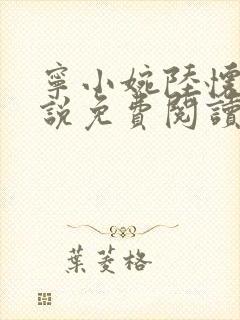 寧小婉陸懷
說免費閱讀
葉菱格